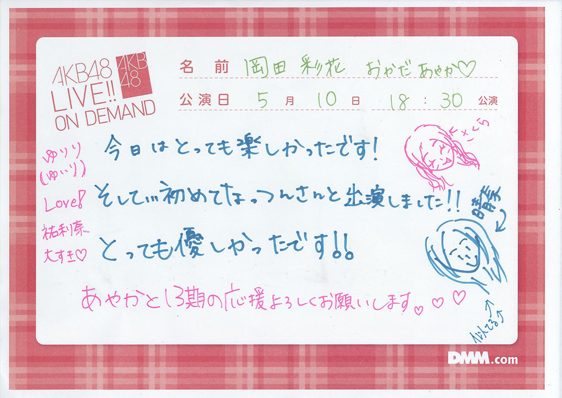 AKB48
LIVE!!
ON DEMAND
AKB
48
名前 岡田 彩花 おかだ あやか♡
公演日 5月 10日 18:30 公演
今日はとっても楽しかったです!
そして初めてなっつんさんと出演しました!!
とっても優しかったです!!
あやかと13期の応援よろしくお願いします♡♡♡
ゆりり
(ゆいり)
Love!
祐利奈
大すき♡
似てる
DMM.com